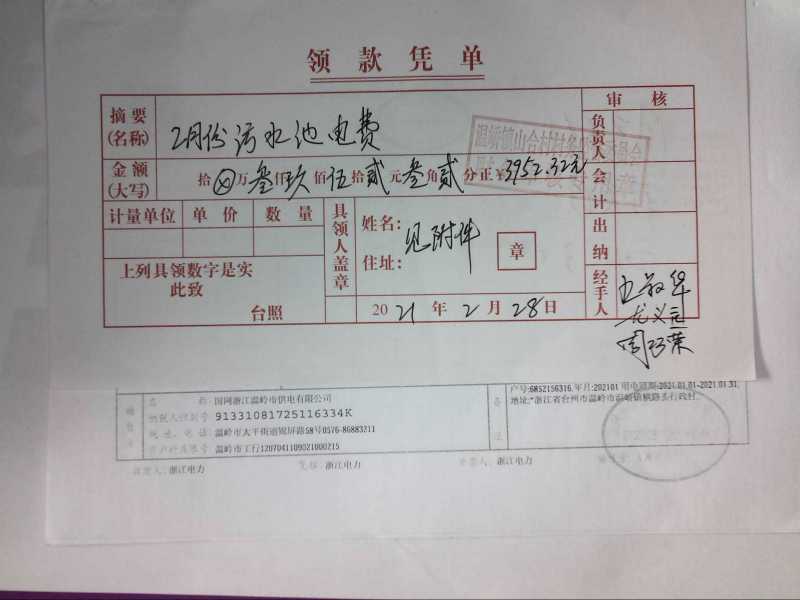 领款凭单
摘要(名称) 2月份污水池电费
审核
负责人
金额(大写) 拾⊗万叁仟玖佰伍拾贰元叁角贰分正¥3952.32元
会计
计量单位 单价 数量
具领人盖章
姓名: 见附件
住址:
章
出纳
上列具领数字是实
此致
台照
2021年2月28日
经手人
名 称: 国网浙江温岭市供电有限公司
纳税人识别号 91331081725116334K
地址、电话 温岭市太平街道锦屏路58号0576-86883211
开户行及账号 温岭市工行1207041109021000215
备注
户号:6852156316,年月:202101 用电周期:2021.01.01-2021.01.31,
收款人: 浙江电力 复核: 浙江电力 开票人: 浙江电力